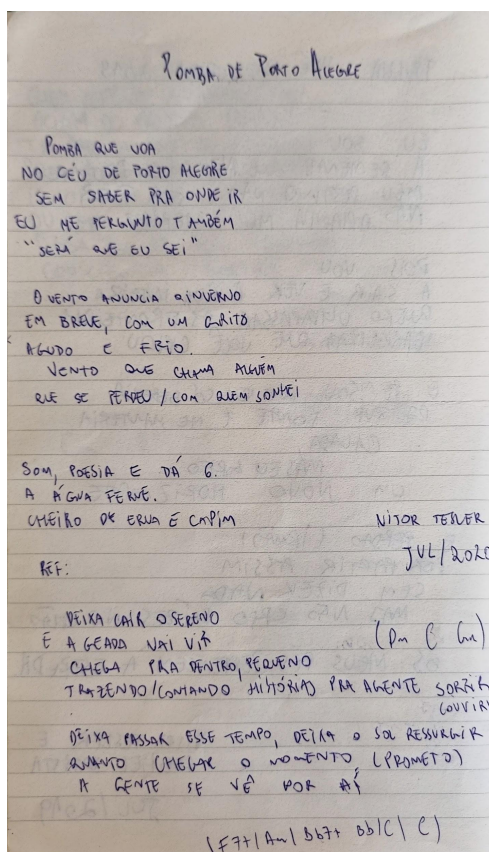 POMBA DE PORTO ALEGRE
POMBA QUE VOA
NO CÉU DE PORTO ALEGRE
SEM SABER PRA ONDE IR
EU ME PERGUNTO TAMBÉM
"SERÁ QUE EU SEI"
O VENTO ANUNCIA O INVERNO
EM BREVE, COM UM GRITO
AGUDO E FRIO.
VENTO QUE CHAMA ALGUÉM
QUE SE PERDEU / COM QUEM SONHEI
SOM, POESIA E DÁ 6.
A ÁGUA FERVE.
CHEIRO DE ERVA E CAPIM
VITOR TESLER
JUL/2020
REF:
DEIXA CAIR O SERENO
E A GEADA VAI VIR
(Dm C Gm)
CHEGA PRA DENTRO, PEQUENO
TRAZENDO/CONTANDO HISTÓRIAS PRA AGENTE SORRIR
(OUVIR)
DEIXA PASSAR ESSE TEMPO, DEIXA O SOL RESSURGIR
QUANTO CHEGAR O MOMENTO (PROMETO)
A GENTE SE VÊ POR AÍ
(F7+/Am/Bb7+ Bb/C/ C)